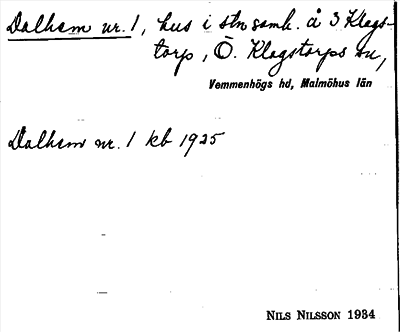 Dalhem nr. 1, hus i stnsamh. å 3 Klags-
torp, Ö. Klagstorps sn,
Vemmenhögs hd, Malmöhus län
Dalhem nr. 1 kb 1925
NILS NILSSON 1934